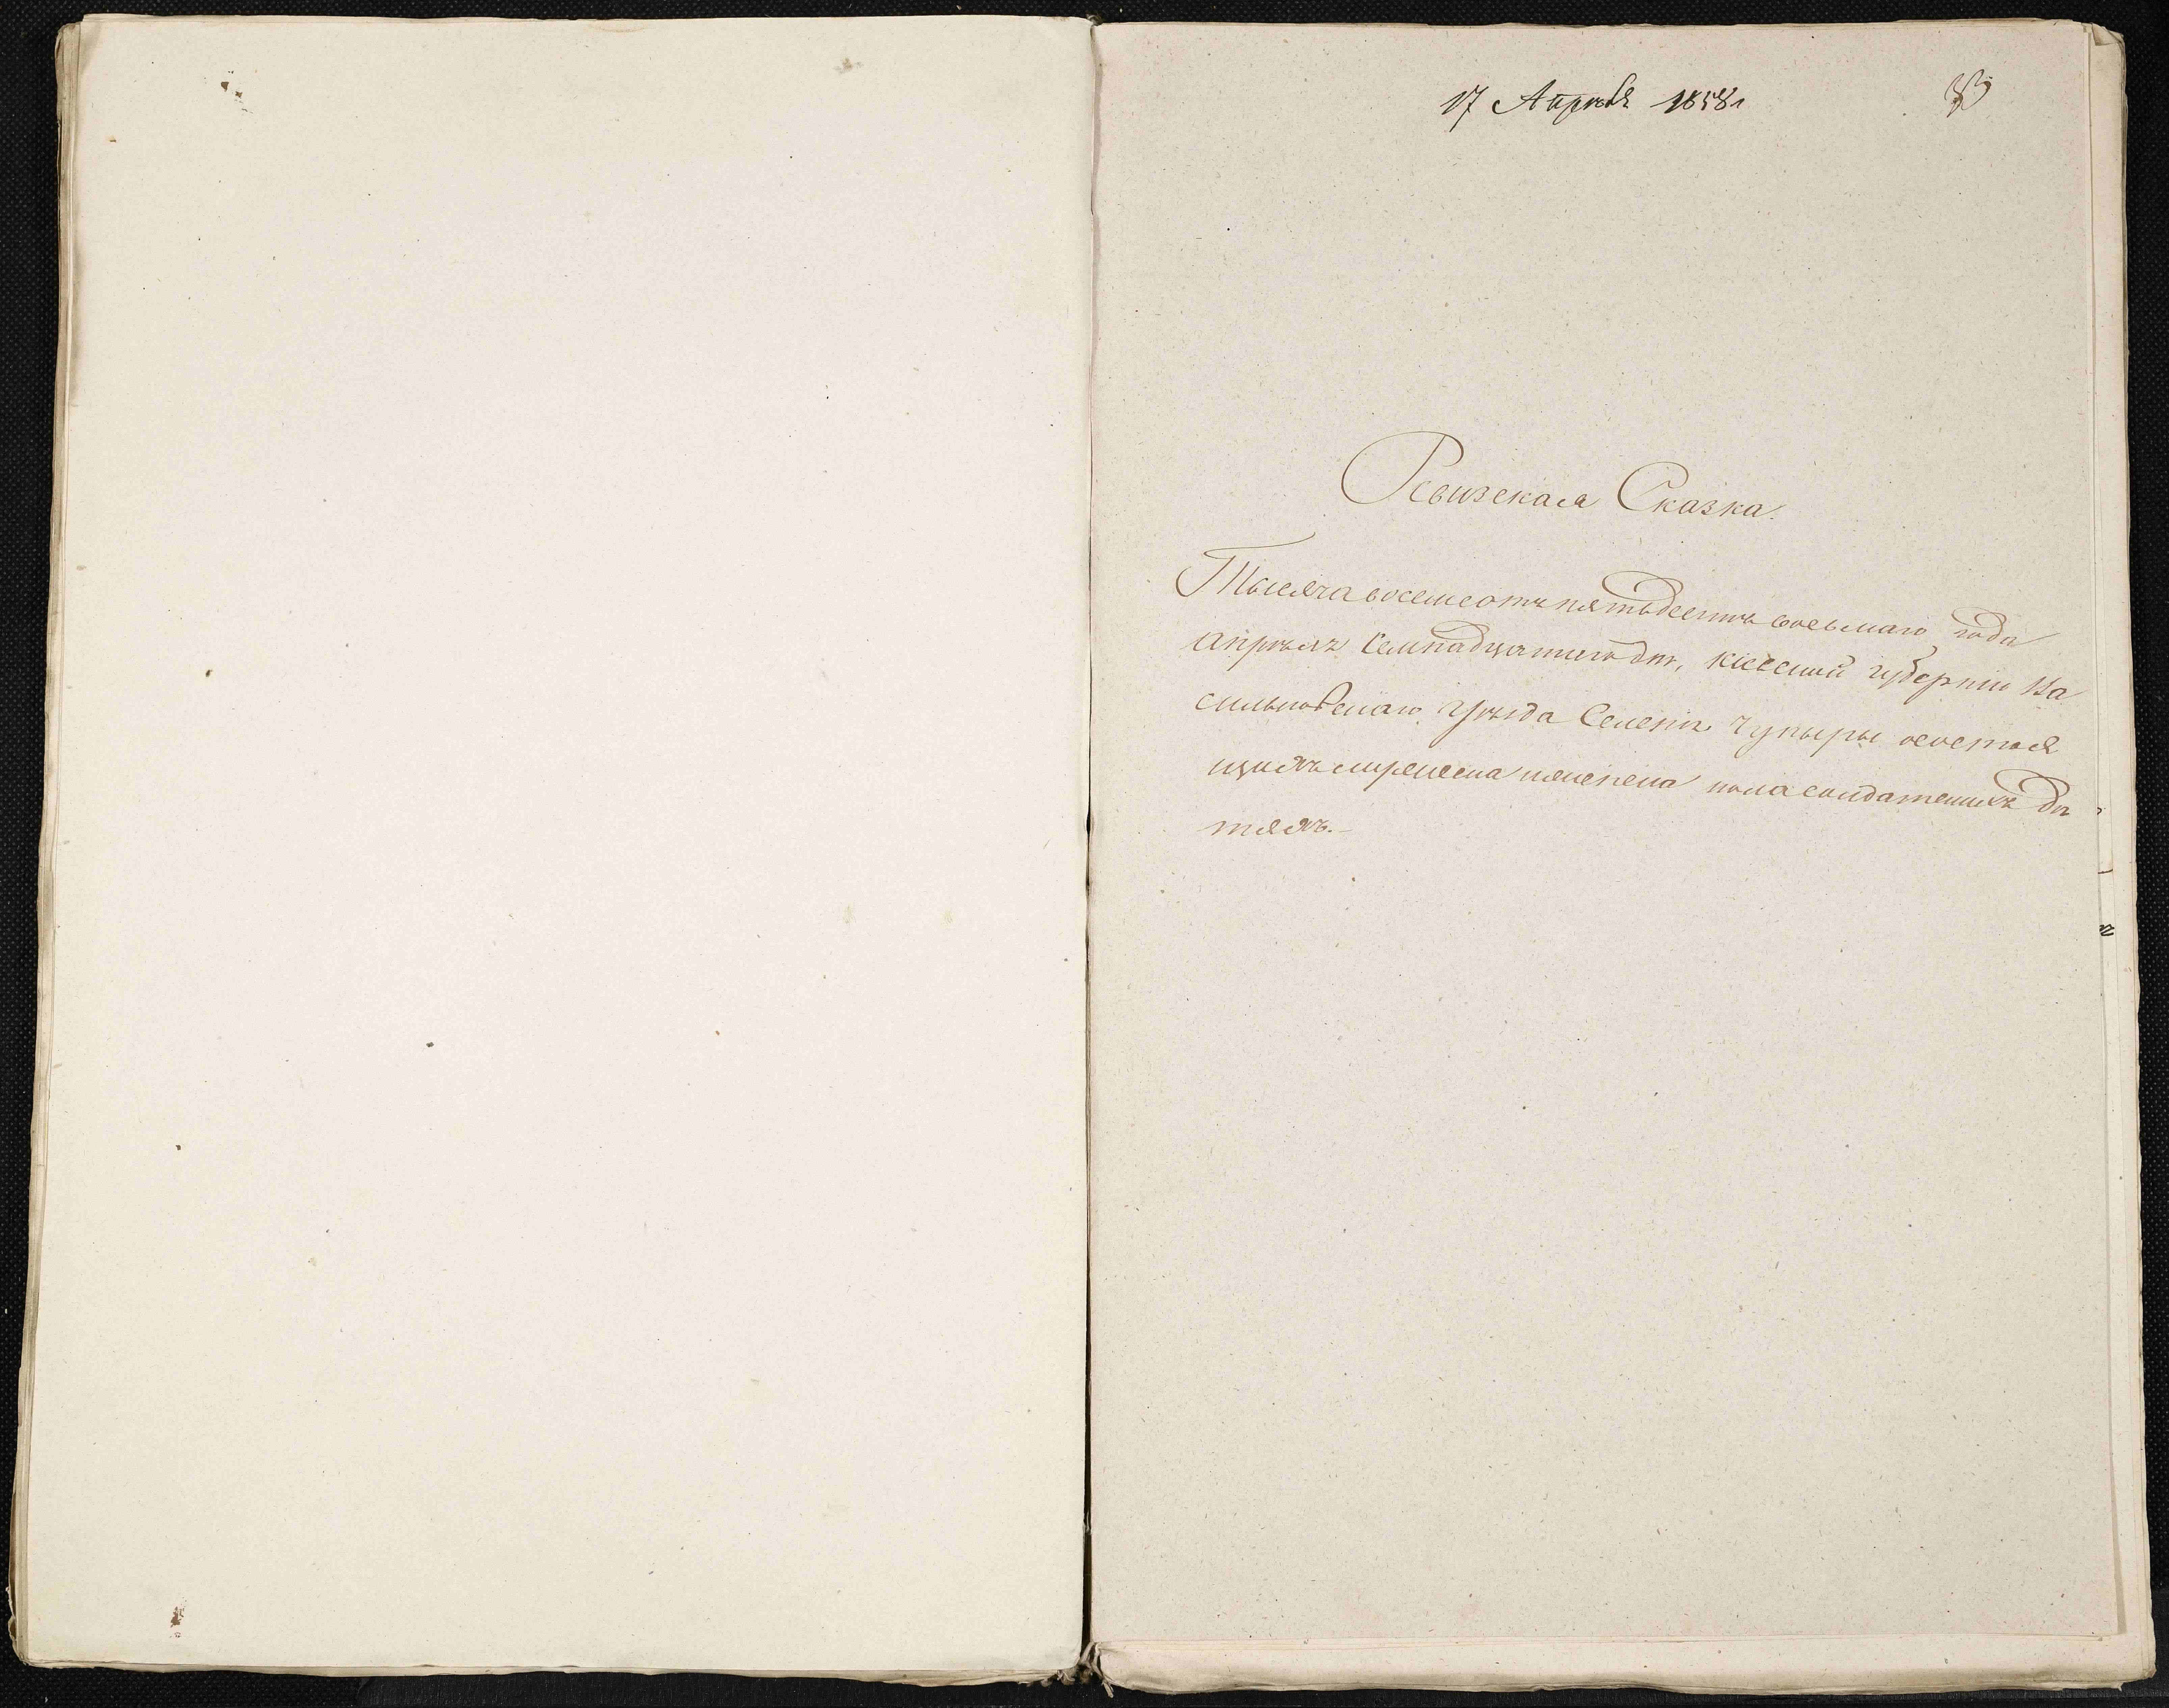 17 Апрѣля 1858 г
Ревизская Сказка.
Тысяча восемсотъ пятьдесятъ восьмаго года
апрѣля Семнадцатаго дня, Кіевской губерніи Ва
сильковскаго уѣзда Селенія Чупыры о состоя
щихъ мужеска и женска пола солдатскихъ дѣ
тяхъ.